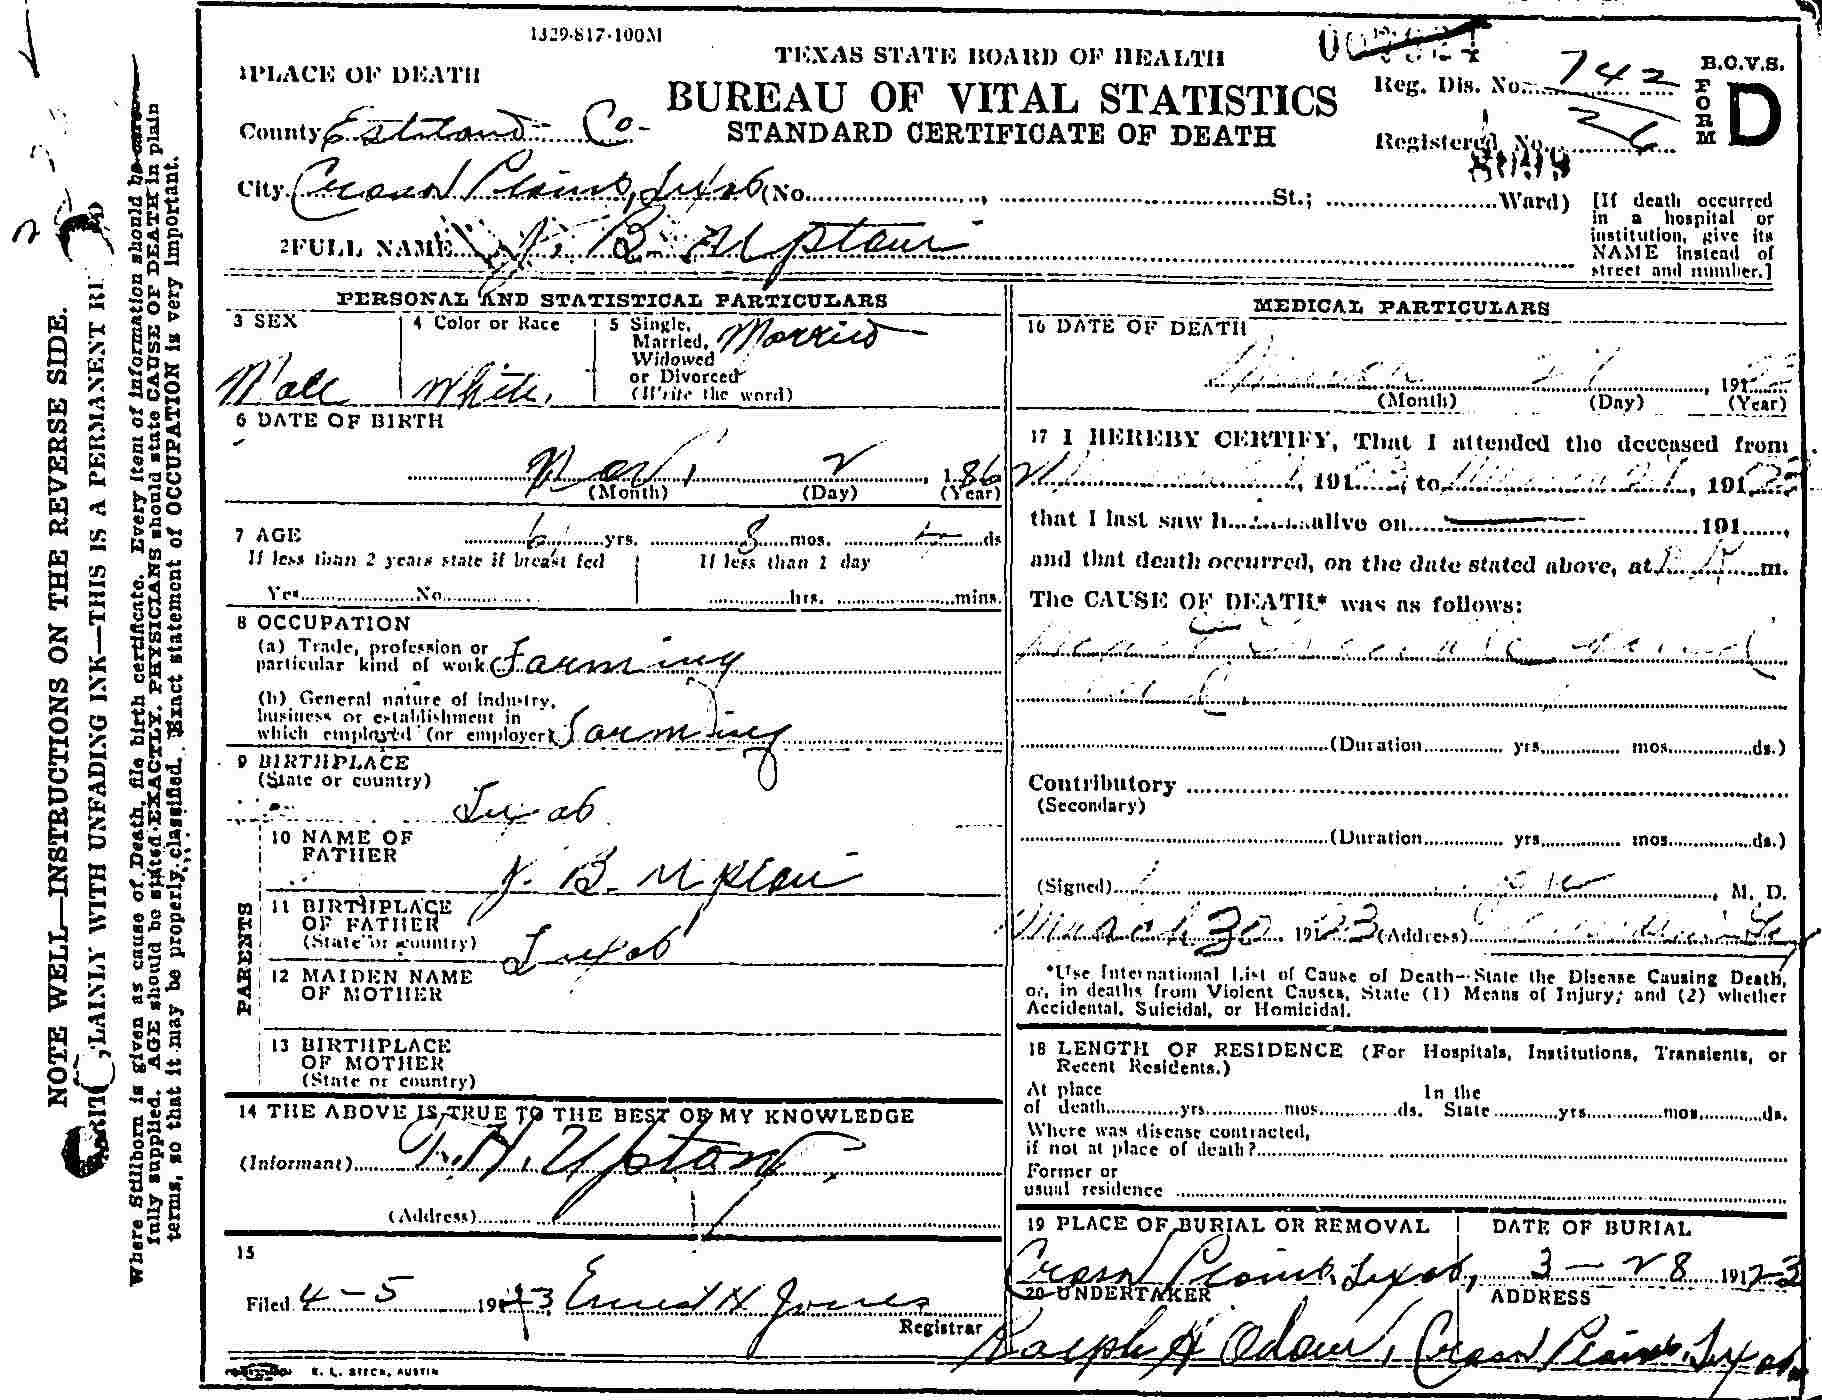 1329-817-100M
TEXAS STATE BOARD OF HEALTH
BUREAU OF VITAL STATISTICS
STANDARD CERTIFICATE OF DEATH
Reg. Dis. No. 742
Registered No. 26
B.O.V.S.
FORM D
1 PLACE OF DEATH
County Eastland Co.
City Cross Plains, Texas (No. , St.; Ward)
[If death occurred
in a hospital or
institution, give its
NAME instead of
street and number.]
2 FULL NAME J. B. Upton
PERSONAL AND STATISTICAL PARTICULARS
3 SEX
Male
4 Color or Race
White.
5 Single,
Married,
Widowed
or Divorced
(Write the word)
Married
6 DATE OF BIRTH
Nov. 2, 186
(Month) (Day) (Year)
7 AGE
yrs. 8 mos. ds
If less than 2 years state if breast fed
Yes No
If less than 1 day
hrs. mins.
8 OCCUPATION
(a) Trade, profession or
particular kind of work Farming
(b) General nature of industry,
business or establishment in
which employed (or employer) Farming
9 BIRTHPLACE
(State or country)
Texas
PARENTS
10 NAME OF
FATHER
J. B. Upton
11 BIRTHPLACE
OF FATHER
(State or country)
Texas
12 MAIDEN NAME
OF MOTHER
13 BIRTHPLACE
OF MOTHER
(State or country)
14 THE ABOVE IS TRUE TO THE BEST OF MY KNOWLEDGE
(Informant) H. Upton
(Address)
15
Filed 4-5 1923 Ernest H Jones
Registrar
E. L. STECK, AUSTIN
MEDICAL PARTICULARS
16 DATE OF DEATH
March 27, 191
(Month) (Day) (Year)
17 I HEREBY CERTIFY, That I attended the deceased from
, 191 , to March 27, 191
that I last saw h alive on 191 ,
and that death occurred, on the date stated above, at m.
The CAUSE OF DEATH* was as follows:
(Duration yrs. mos. ds.)
Contributory
(Secondary)
(Duration yrs. mos. ds.)
(Signed) , M. D.
March 30, 1923 (Address)
*Use International List of Cause of Death—State the Disease Causing Death,
or, in deaths from Violent Causes, State (1) Means of Injury; and (2) whether
Accidental, Suicidal, or Homicidal.
18 LENGTH OF RESIDENCE (For Hospitals, Institutions, Transients, or
Recent Residents.)
At place In the
of death yrs. mos. ds. State yrs. mos. ds.
Where was disease contracted,
if not at place of death?
Former or
usual residence
19 PLACE OF BURIAL OR REMOVAL
Cross Plains, Texas,
DATE OF BURIAL
3-28 1923
20 UNDERTAKER
Ralph H Odom,
ADDRESS
Cross Plains, Texas
NOTE WELL—INSTRUCTIONS ON THE REVERSE SIDE.
PLAINLY WITH UNFADING INK—THIS IS A PERMANENT
Where Stillborn is given as cause of Death, file birth certificate. Every item of information should be
fully supplied. AGE should be stated EXACTLY. PHYSICIANS should state CAUSE OF DEATH in plain
terms, so that it may be properly classified. Exact statement of OCCUPATION is very important.